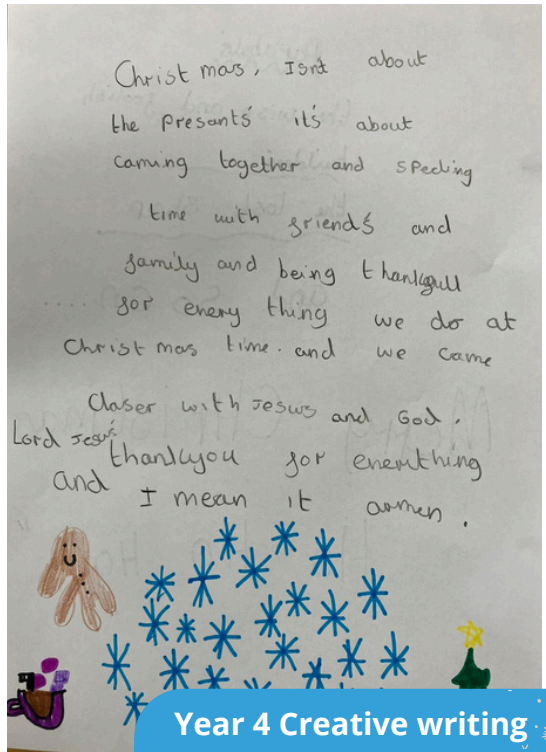 Christmas, Isnt about
the presants it's about
caming together and specling
time with friends and
family and being thankgull
for enery thing we do at
Christmas time. and we came
Claser with Jesus and God.
Lord Jesus
thankyou for enerything
and I mean it armen.
Year 4 Creative writing